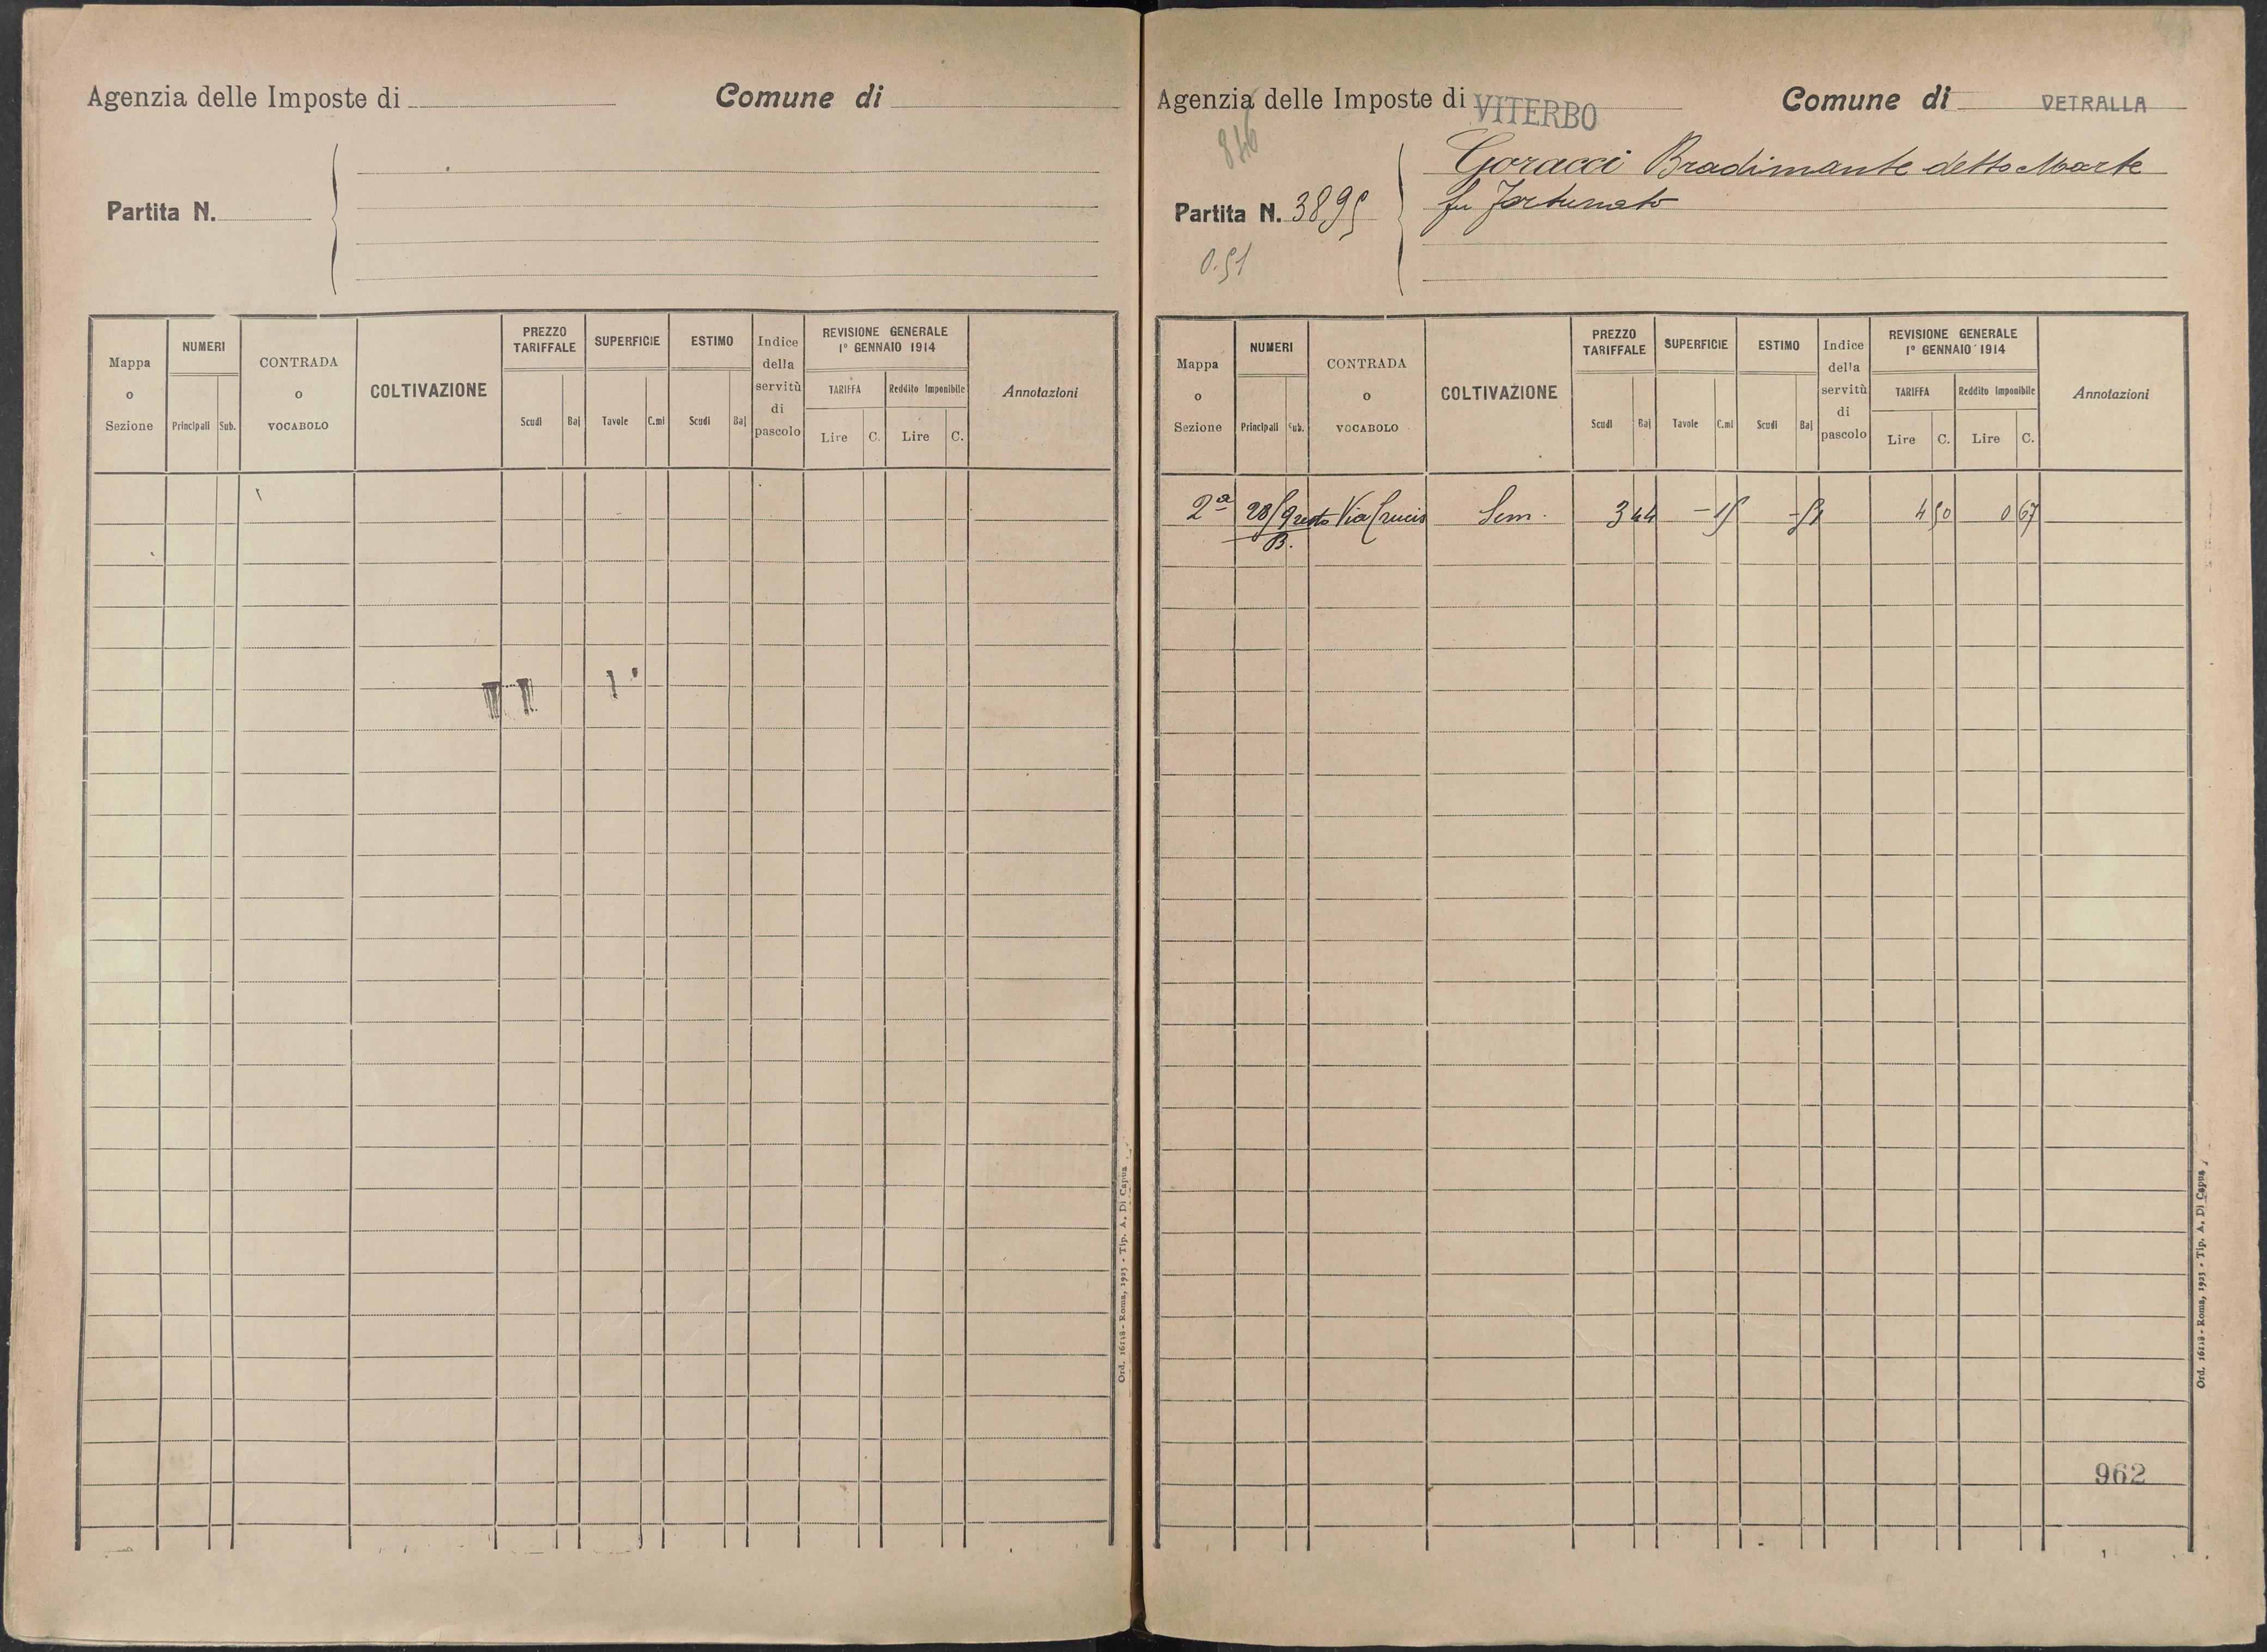 Agenzia delle Imposte di
Comune di
Partita N.
Mappa o Sezione
NUMERI
Principali
Sub.
CONTRADA o VOCABOLO
COLTIVAZIONE
PREZZO TARIFFALE
Scudi
Baj
SUPERFICIE
Tavole
C.mi
ESTIMO
Scudi
Baj
Indice della servitù di pascolo
REVISIONE GENERALE
1° GENNAIO 1914
TARIFFA
Lire
C.
Reddito Imponibile
Lire
C.
Annotazioni
Ord. 16118 - Roma, 1923 - Tip. A. Di Capua
Agenzia delle Imposte di VITERBO
Comune di VETRALLA
846
Goracci Bradimante detto Marte
fu Fortunato
Partita N. 3895
0.51
Mappa o Sezione
NUMERI
Principali
Sub.
CONTRADA o VOCABOLO
COLTIVAZIONE
PREZZO TARIFFALE
Scudi
Baj
SUPERFICIE
Tavole
C.mi
ESTIMO
Scudi
Baj
Indice della servitù di pascolo
REVISIONE GENERALE
1° GENNAIO 1914
TARIFFA
Lire
C.
Reddito Imponibile
Lire
C.
Annotazioni
2ª 28/9 resto Via Crucis Sem. 3 44 - 15 - 51 4 50 0 67
B.
962
Ord. 16118 - Roma, 1923 - Tip. A. Di Capua